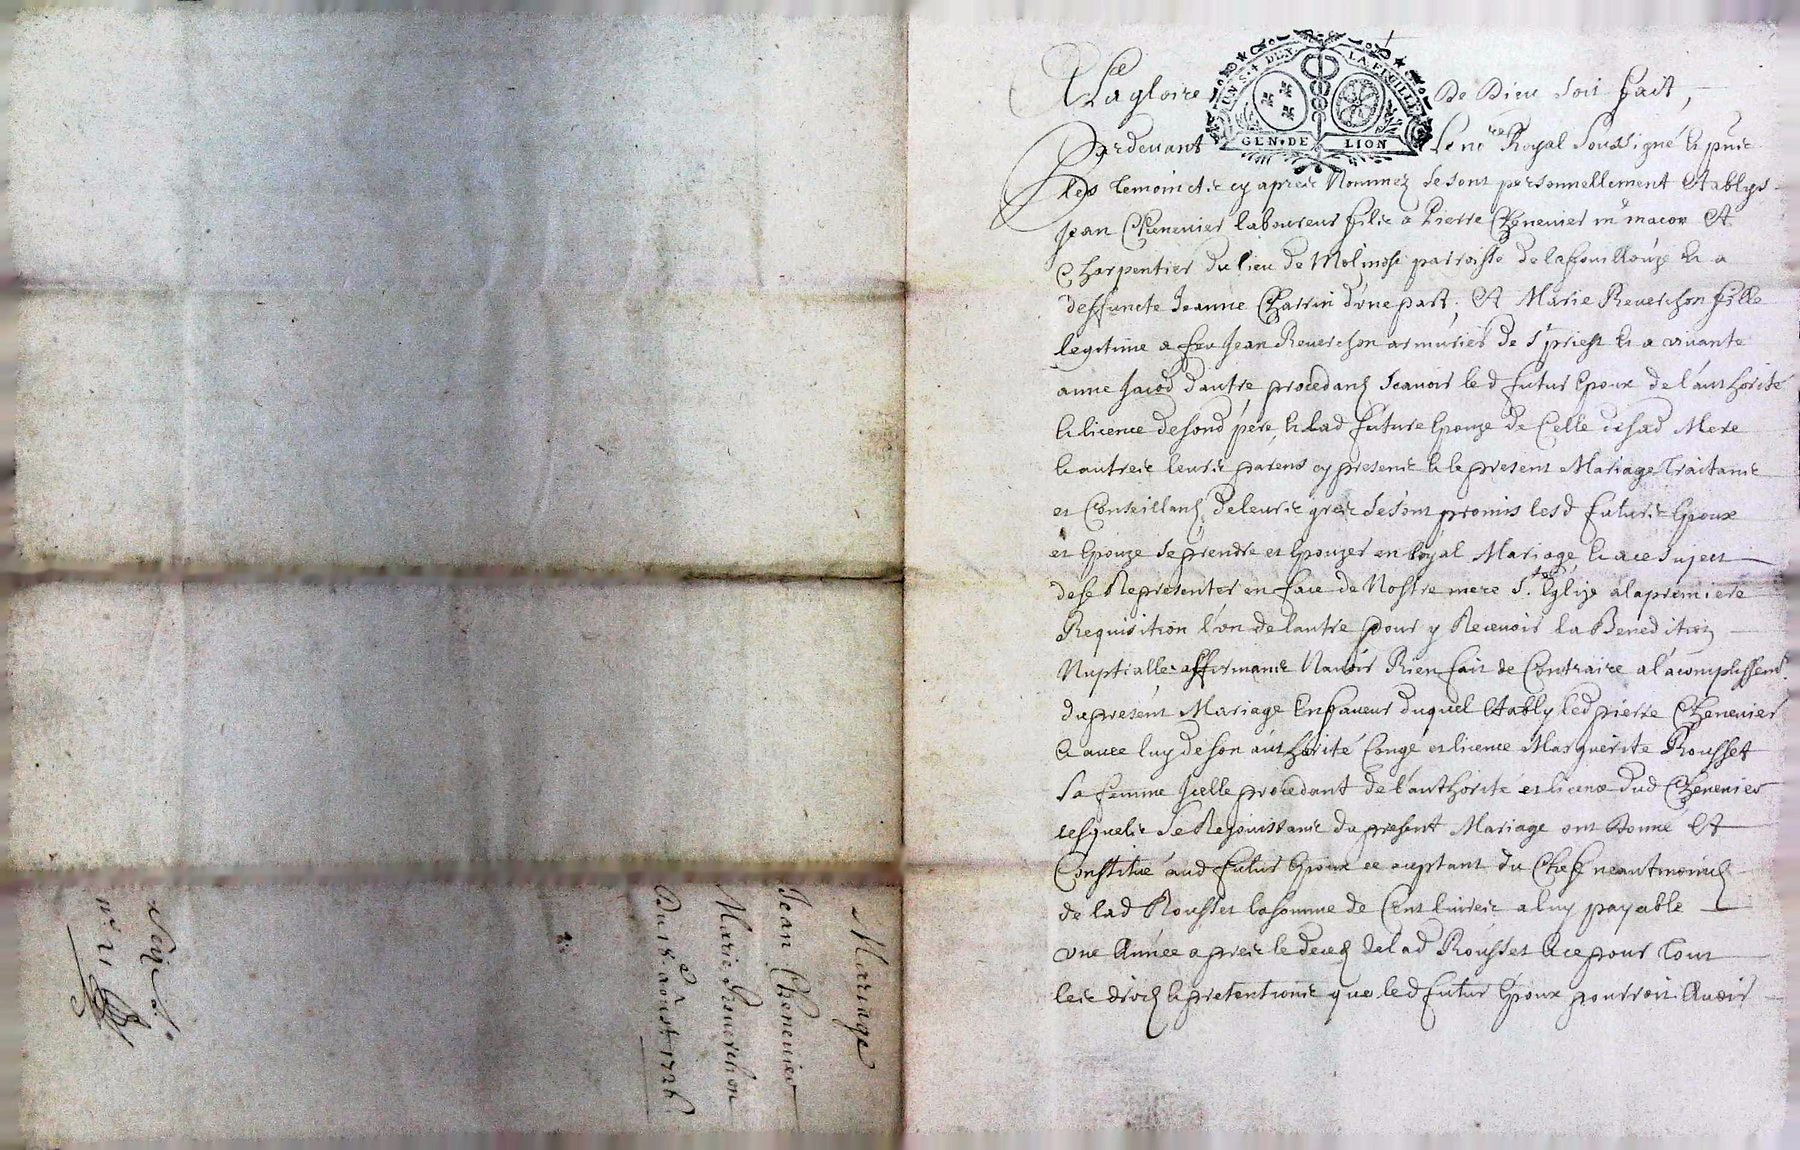 Mariage
Jean Chenevier
Marie Reverchon
Du 18 aoust 1726
n° 21
UN S. + DEN. LA FEUILLE
GEN. DE LION
A La gloire De Dieu soit fait,
Pardevant Le nre Royal Soussigné &
les temoinctz cy apres Nommez se sont personnellement Etablys
Jean Chenevier laboureur filz a Pierre Chenevier me macon Et
Charpentier du lieu de Molinost parroisse de lafouillouze & a
deffuncte Jeanne Charrin d'une part, Et Marie Reverchon fille
legitime a feu Jean Reverchon armurier de St priest & a vivante
anne Jacod dautre, procedans scavoir led futur Epoux de l'authorité
& licence de sond père, & lad future Epouze de Celle de sad Mere
& autres leurs parens cy presens & le present Mariage Traitans
et Conseillans, de leurs grez se sont promis lesd futurs Epoux
et Epouze se prendre et Epouzer en loyal Mariage, & a ce suject
de se Representer en face de Nostre mere Ste Eglize a la premiere
Requisition l'un de lautre pour y Recevoir la Benediction
Nuptialle affirmans Navoir Rien fait de Contraire a l'acomplissemt
du present Mariage En faveur duquel Etably led pierre Chenevier
& avec luy de son authorité Congé et licence Marguerite Rousset
sa femme Icelle procedant de l'authorité et licence dud Chenevier
lesquels se Rejouissans du present Mariage ont Donné Et
Constitué aud futur Epoux ce aceptant du Chef neantmoins
de lad Rousset la somme de Cent livres a luy payable
une Année apres le deces de lad Rousset & ce pour Tous
les droits & pretentions que led futur Epoux pourroit Avoir